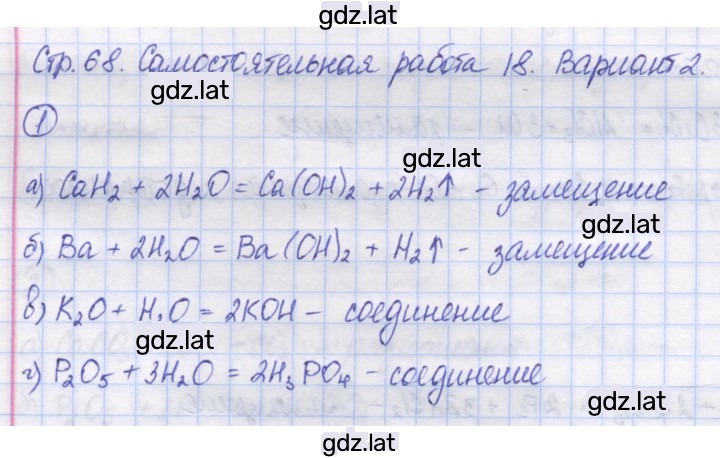 gdz.lat
Стр. 68. Самостоятельная работа 18. Вариант 2.
gdz.lat
1
gdz.lat
а) CaH₂ + 2H₂O = Ca(OH)₂ + 2H₂↑ - замещение
gdz.lat
б) Ba + 2H₂O = Ba(OH)₂ + H₂↑ - замещение
в) K₂O + H₂O = 2KOH - соединение
gdz.lat
г) P₂O₅ + 3H₂O = 2H₃PO₄ - соединение
gdz.lat